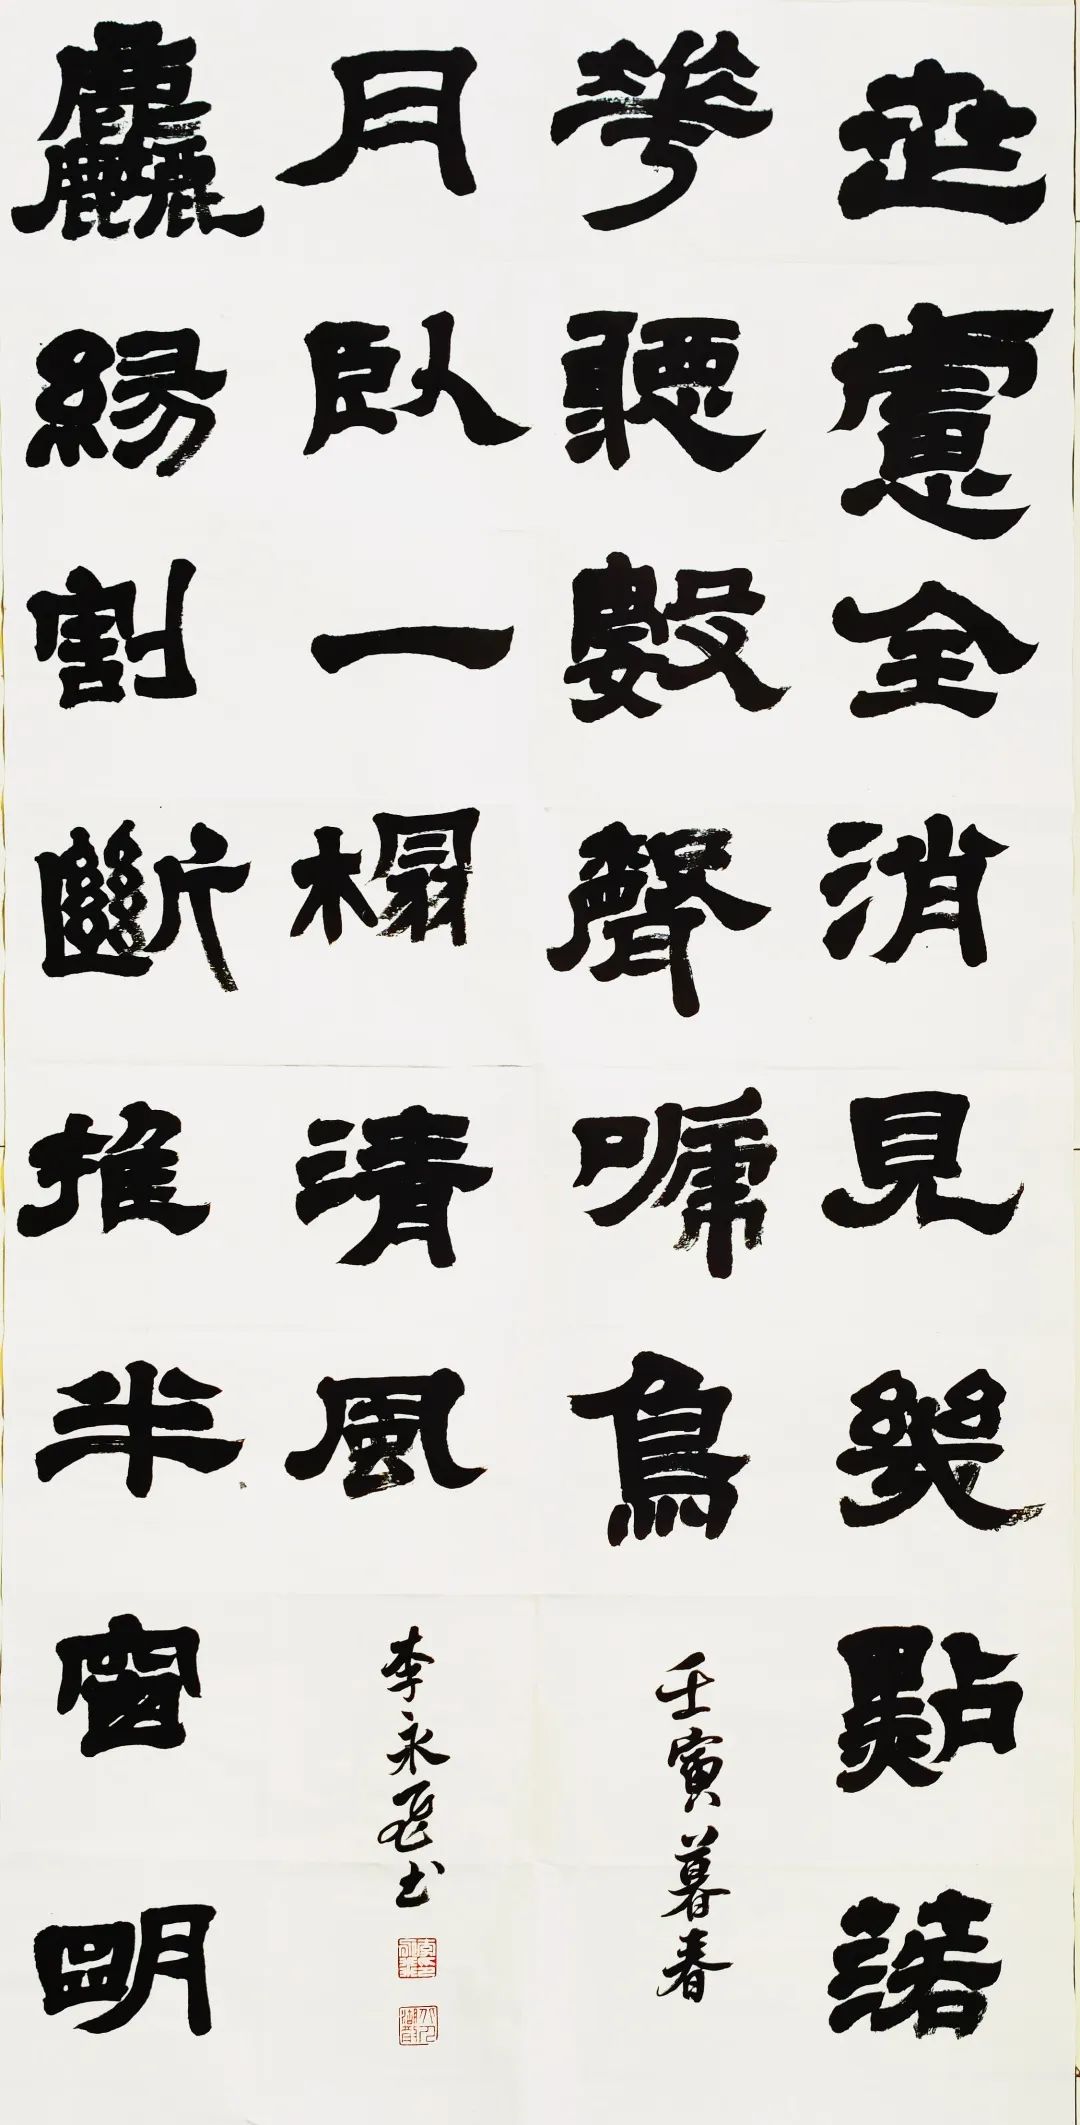 世慮全消見幾點落
華聽數聲啼鳥
壬寅暮春
塵緣割斷推半窗明
月臥一榻清風
李永飛书